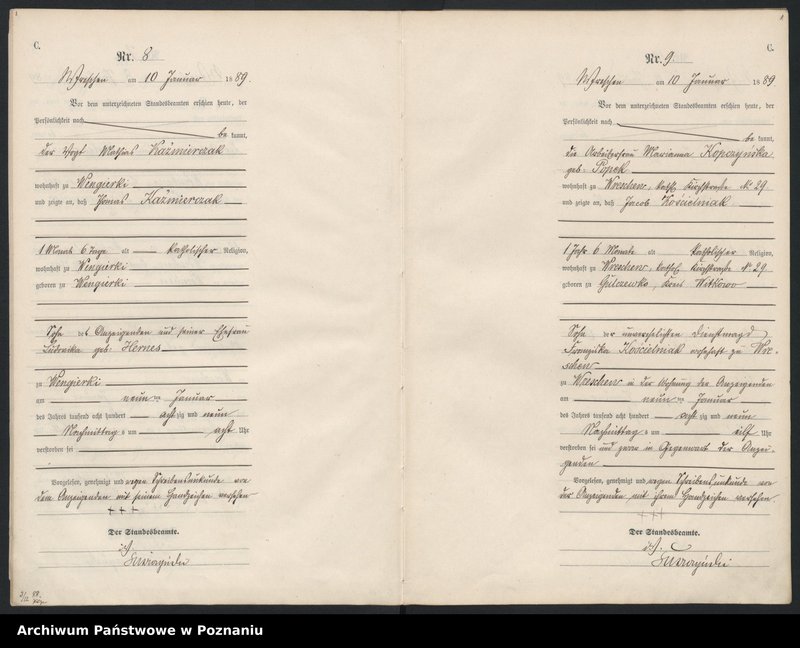 1
C.
Nr. 8
Wreschen am 10 Januar 1889.
Vor dem unterzeichneten Standesbeamten erschien heute, der
Persönlichkeit nach
be kannt,
der Vogt Mathias Kaźmierczak
wohnhaft zu Wengierki
und zeigte an, daß Thomas Kaźmierczak
1 Monat 6 Tage alt katholischer Religion,
wohnhaft zu Wengierki
geboren zu Wengierki
Sohn des Anzeigenden und seiner Ehefrau
Ludwika geb. Hernes
zu Wengierki
am neun ten Januar
des Jahres tausend acht hundert acht zig und neun
Nachmittag s um acht Uhr
verstorben sei
Vorgelesen, genehmigt und wegen Schreibensunkunde von
dem Anzeigenden mit seinem Handzeichen versehen
+++
Der Standesbeamte.
1
C.
Nr. 9.
Wreschen am 10 Januar 1889
Vor dem unterzeichneten Standesbeamten erschien heute, der
Persönlichkeit nach
be kannt,
die Arbeiterfrau Marianna Kopczyńska
geb. Popek
wohnhaft zu Wreschen, kathl. Kirchstraße No 29
und zeigte an, daß Jacob Kościelniak
1 Jahr 6 Monate alt katholischer Religion,
wohnhaft zu Wreschen, kathl. Kirchstraße No 29
geboren zu Gulczewko, Kreis Witkowo
Sohn der unverehelichten Dienstmagd
Franziska Kościelniak wohnhaft zu Wre-
schen
zu Wreschen in der Wohnung der Anzeigenden
am neun ten Januar
des Jahres tausend acht hundert acht zig und neun
Nachmittag s um eilf Uhr
verstorben sei und zwar in Gegenwart der Anzei-
genden
Vorgelesen, genehmigt und wegen Schreibensunkunde von
der Anzeigenden mit ihrem Handzeichen versehen.
+++
Der Standesbeamte.
Archiwum Państwowe w Poznaniu